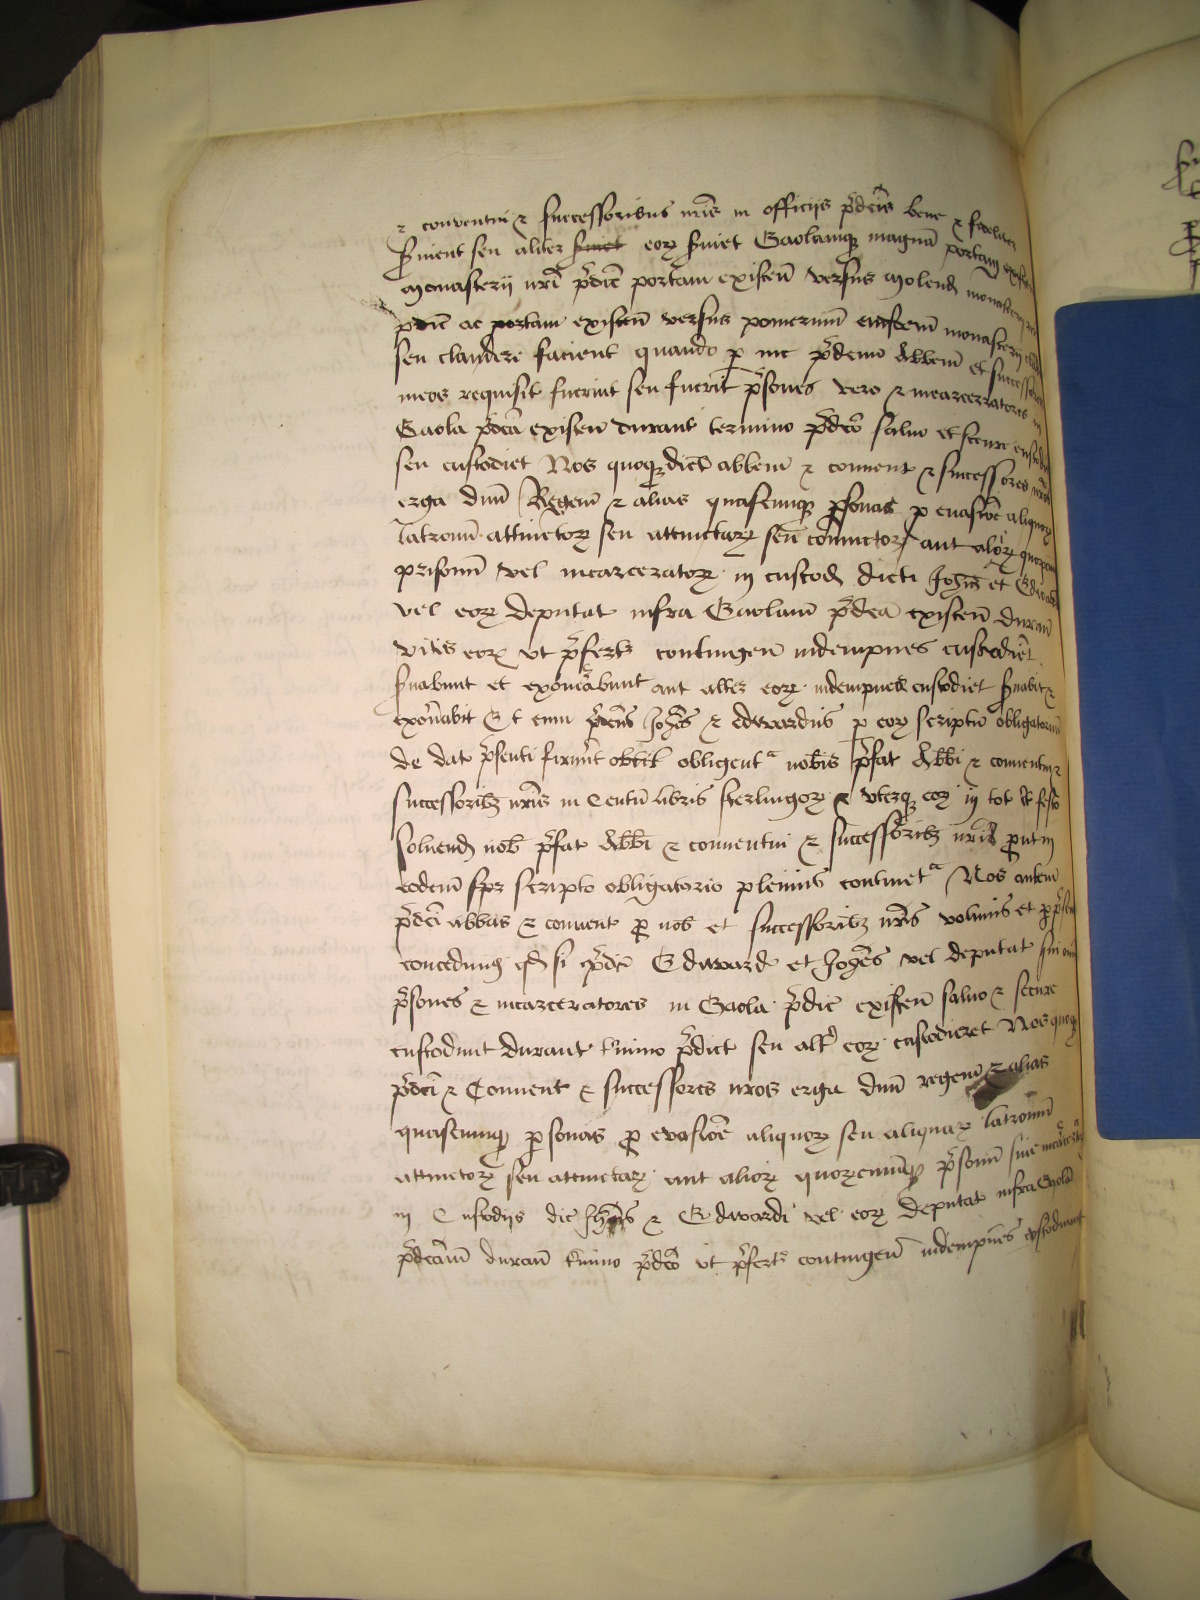 & conventui & successoribus nris in officijs p̄dcis bene & fideliter
s̄vient seu alter s̄viet eoꝝ s̄viet Gaolamqꝫ magnā portam existen
monasterij nr̄i p̄dic̄ portam existen̄ versus molend monasterij
p̄dic̄ ac portam existen̄ versus pomerium eiusdem monasterij
seu claudere facient quando p me p̄dcm̄ Abbem̄ et successores
meos requisit fuerint seu fuerit p̄sones vero & incarceratores in
Gaola p̄dcā existen̄ durant termino p̄dco salvo et secure custodient
seu custodiet Nos quoqꝫ dict abbem̄ & convent & successores nros
erga dnm̄ Regem̄ & alias quascumqꝫ p̄sonas p evasiōe aliquoꝝ
latronū attinctoꝝ seu attinctaꝝ seu convictoꝝ aut alioꝝ
prisonū vel incarceratoꝝ in custod dicti Joh̄is et Edwardi
vel eoꝝ deputat infra Gaolam̄ p̄dcā existen̄ duran̄
vitis eoꝝ ut p̄fertꝰ contingen̄ indempnes custodiēt
s̄vabunt et exon̄abunt aut alter eoꝝ indempnes custodiet s̄vabit &
exon̄abit Et cum Joh̄es & Edwardus p eoꝝ scriptū obligatoriū
de dat p̄senti obligentᵃ nobis p̄fat Abb̄i & conventui &
successoribꝫ nris in Centū libris sterlingoꝝ & uterqꝫ eoꝝ in tot
solvend nob̄ p̄fat Abb̄i & conventui & successoribꝫ nris prout in
eodem̄ scripto obligatorio plenius continetᵃ Nos autem
p̄dci abbas & convent p nob̄ et successoribꝫ nris volumus et p
concedimꝰ qd si p̄dc̄ Edward et Joh̄es vel deputat sui
p̄sones & incarceratores in Gaola p̄dic̄ existen̄ salvo & secure
custodiunt durant t̄mino p̄dict seu alt̄ eoꝝ custodieret Nos quoqꝫ
p̄dci & Convent & successores nros erga dnm̄ regem̄ & alias
quascumqꝫ p̄sonas p evasiōe aliquoꝝ seu aliquaꝝ latronū
attinctoꝝ seu attinctaꝝ aut alioꝝ quoꝝcumqꝫ p̄sonū sive
in Custodijs dic̄ Joh̄is & Edwardi vel eoꝝ deputat infra Gaolā
p̄dictam̄ duran̄ t̄mino p̄dco ut p̄fertꝰ contingen̄ indempnes custodiunt